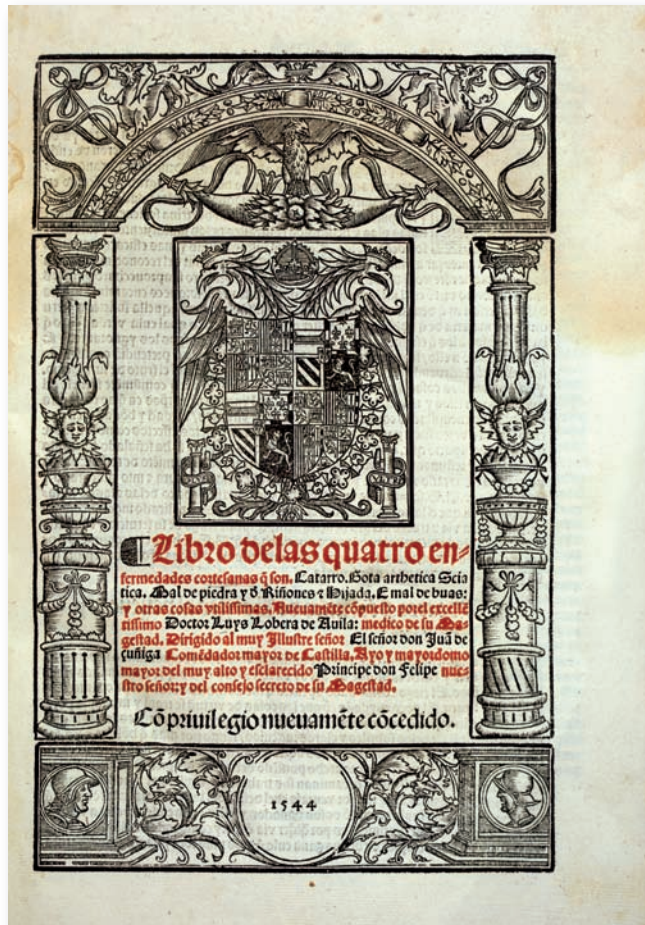 ¶ Libro delas quatro en-
fermedades cortesanas q̃ son. Catarro. Gota arthetica Scia
tica. Mal de piedra y d̕ Riñones ⁊ Hijada. E mal de buas:
y otras cosas vtilissimas. Nueuamẽte cõpuesto porel excellẽ
tissimo Doctor Luys Lobera de Auila: medico de su Ma-
gestad. Dirigido al muy Illustre señor El señor don Juã de
çuñiga Comẽdador mayor de Castilla. Ayo y mayordomo
mayor del muy alto y esclarecido Principe don Felipe nue-
stro señor: y del consejo secreto de su Magestad.
Cõ priuilegio nueuamẽte cõcedido.
1544